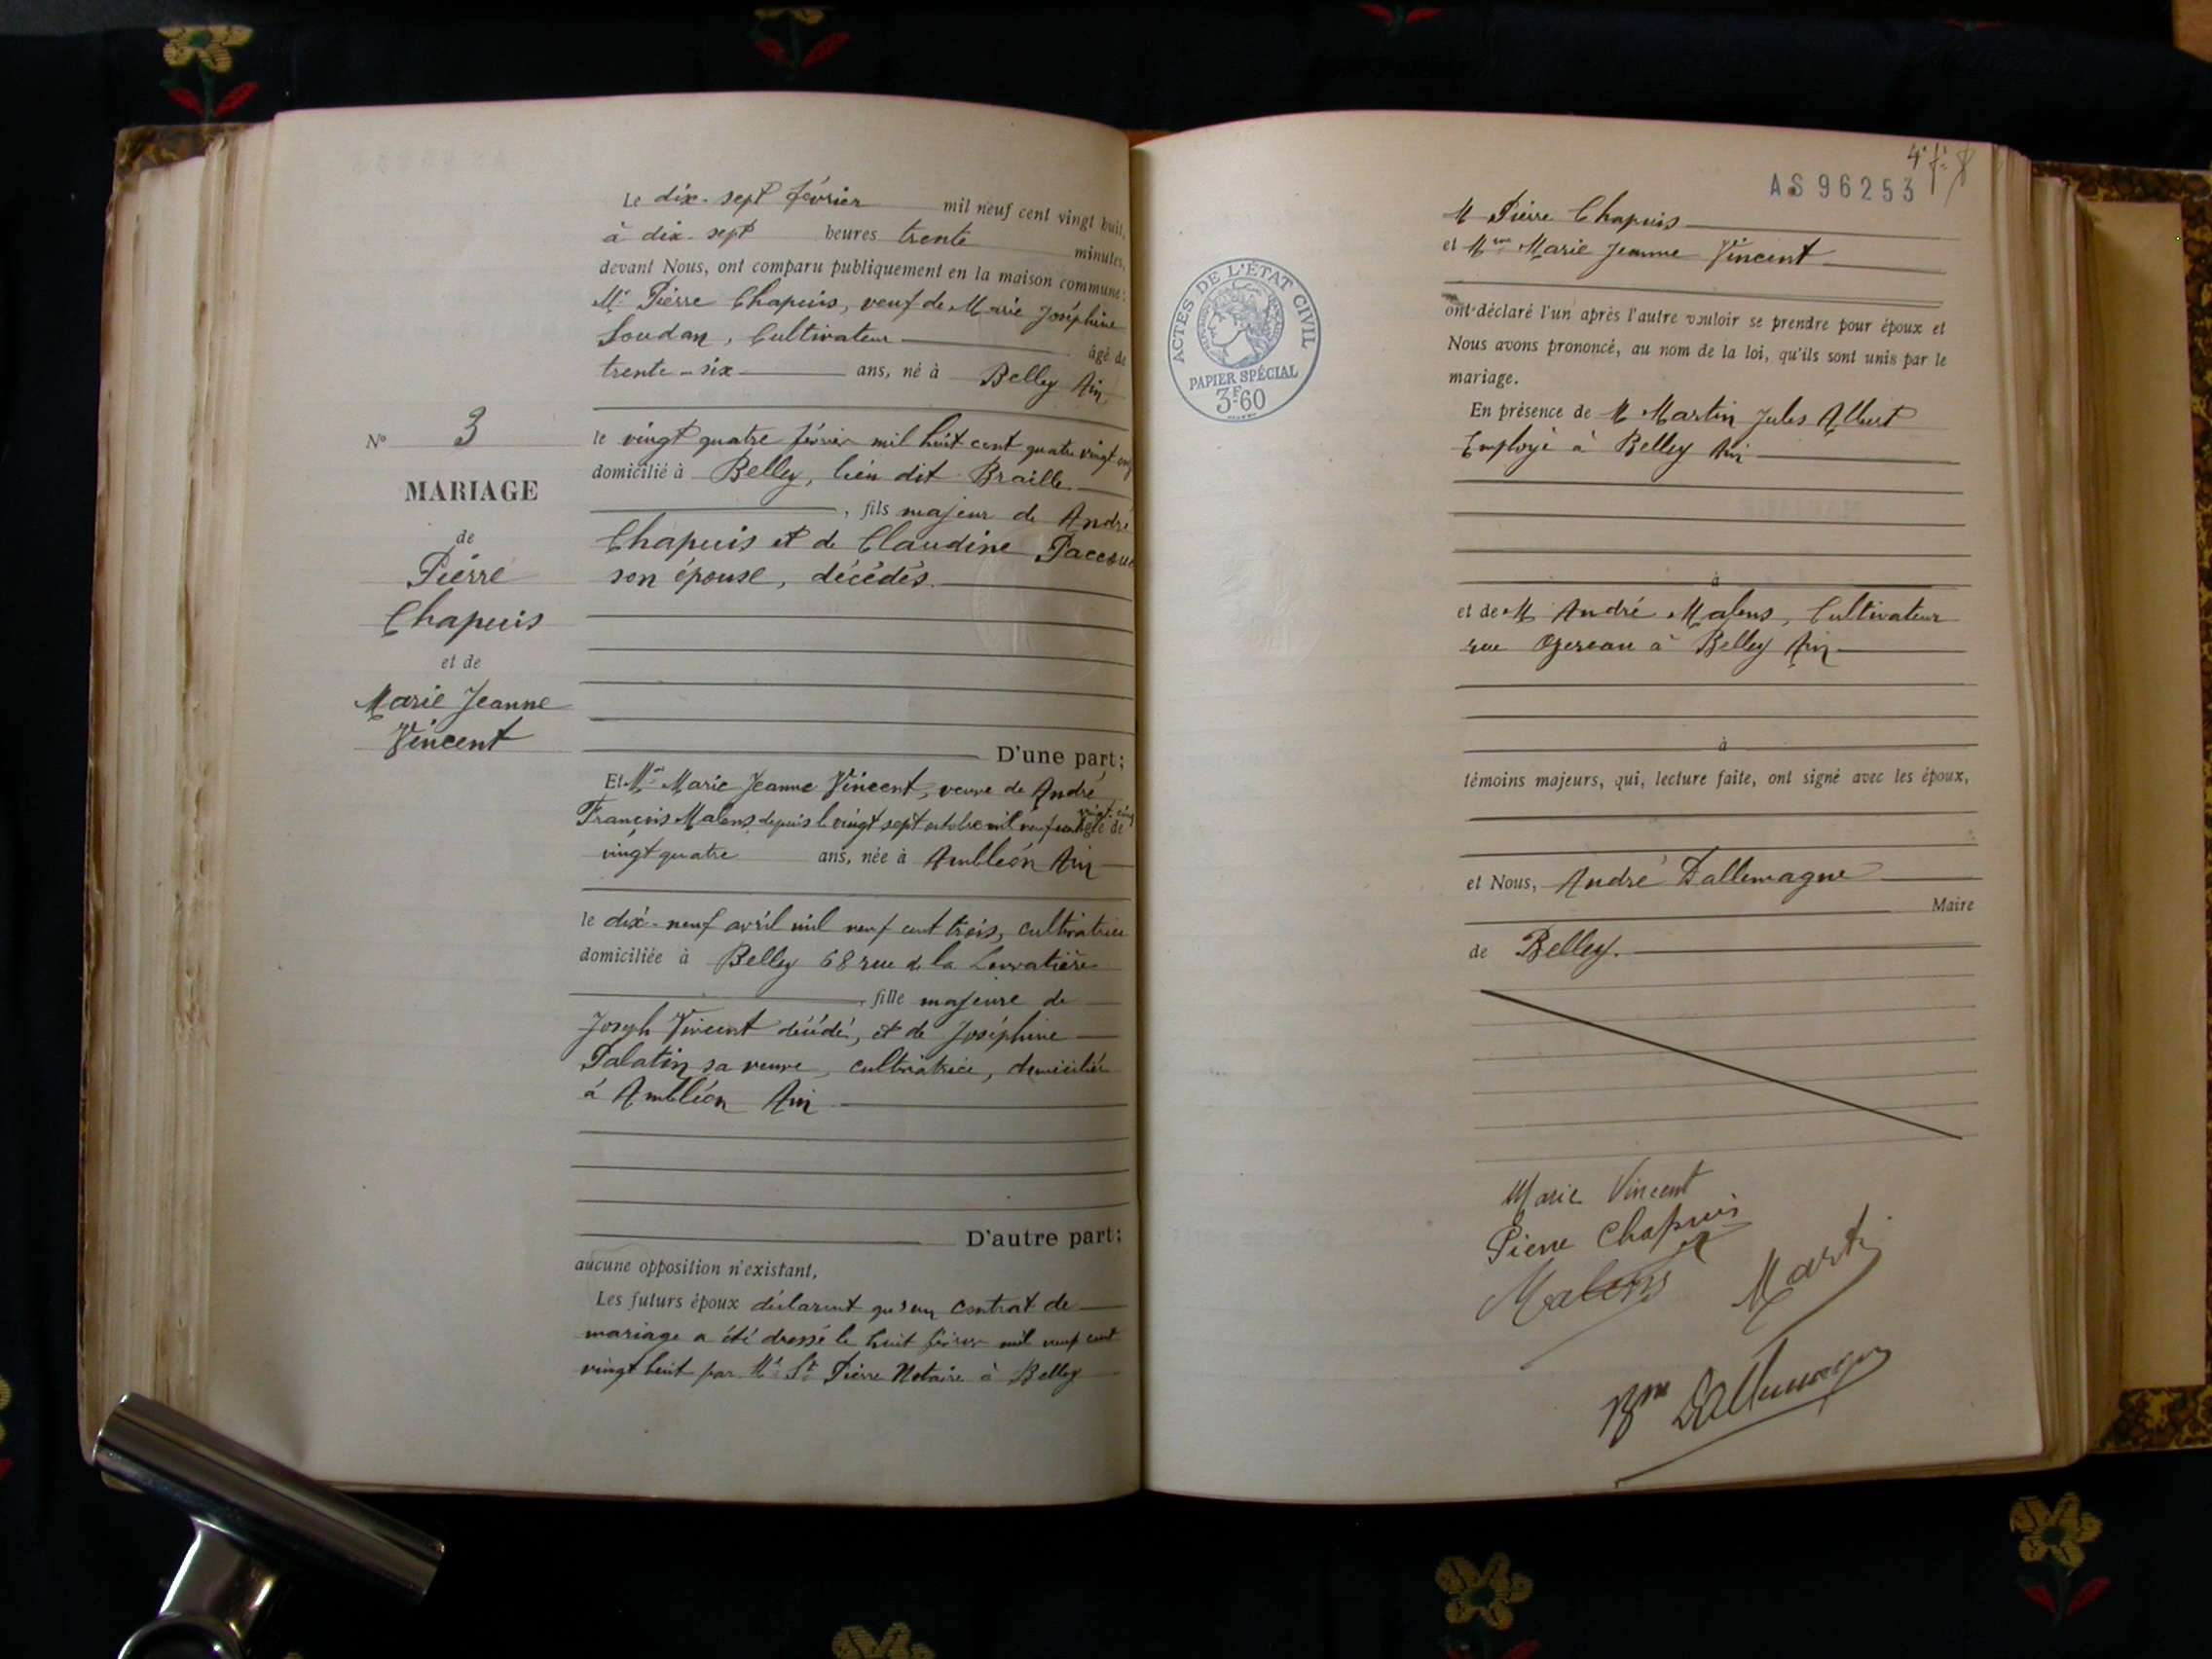 Le dix-sept février mil neuf cent vingt huit,
à dix-sept heures trente minutes,
devant Nous, ont comparu publiquement en la maison commune :
Mr Pierre Chapuis, veuf de Marie Joséphine
Soudan, Cultivateur âgé de
trente-six ans, né à Belley Ain
le vingt quatre février mil huit cent quatre vingt
domicilié à Belley, lieu dit Braille
, fils majeur de André
Chapuis et de Claudine
son épouse, décédés.
D'une part;
N° 3
MARIAGE
de
Pierre
Chapuis
et de
Marie Jeanne
Vincent
Et Me Marie Jeanne Vincent, veuve de André
vingt-cinq
François Malens depuis le vingt sept octobre mil neuf cent âgée de
vingt quatre ans, née à Ambléon Ain
le dix-neuf avril mil neuf cent trois, cultivatrice
domiciliée à Belley 68 rue de la
, fille majeure de
Joseph Vincent décédé, et de Joséphine
Palatin sa veuve, cultivatrice, domiciliée
à Ambléon Ain
D'autre part;
aucune opposition n'existant.
Les futurs époux déclarent qu'un contrat de
mariage a été dressé le huit février mil neuf cent
vingt huit par Me St Pierre Notaire à Belley
AS 96253
ACTES DE L'ÉTAT CIVIL
PAPIER SPÉCIAL
3F60
M Pierre Chapuis
et Mme Marie Jeanne Vincent
ont déclaré l'un après l'autre vouloir se prendre pour époux et
Nous avons prononcé, au nom de la loi, qu'ils sont unis par le
mariage.
En présence de M Martin Jules Albert
Employé à Belley Ain
à
et de M André Malens, Cultivateur
rue à Belley Ain
à
témoins majeurs, qui, lecture faite, ont signé avec les époux,
et Nous, André Dallemagne
Maire
de Belley.
Marie Vincent
Pierre Chapuis
Malens
Martin
Bon Dallemagne